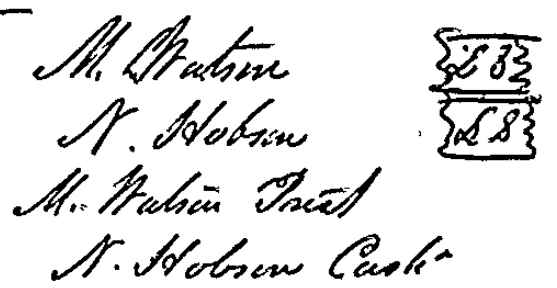 M. Watson LS
N. Hobson LS
M. Watson Prest
N. Hobson Cash